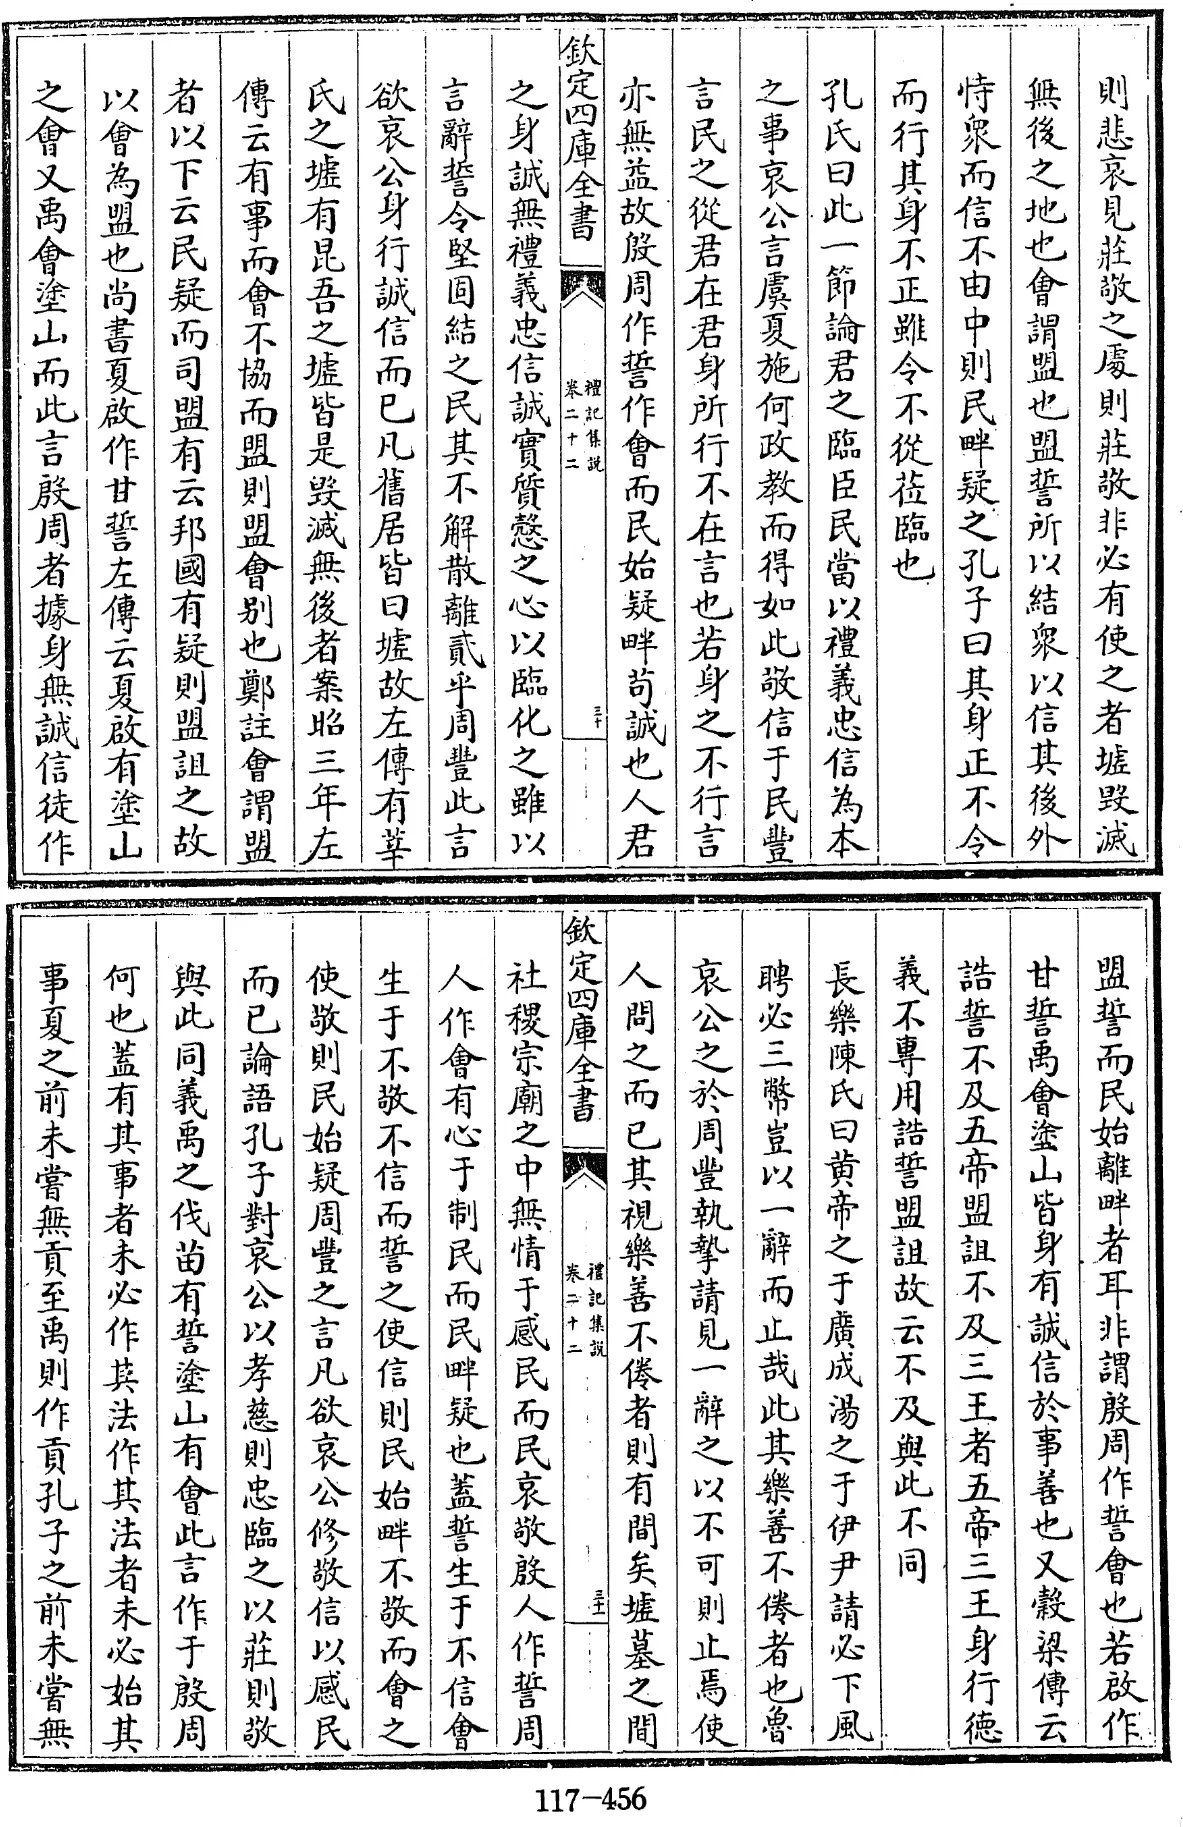 則悲哀見莊敬之處則莊敬非必有使之者墟毀滅
無後之地也會謂盟也盟誓所以結衆以信其後外
恃衆而信不由中則民畔疑之孔子曰其身正不令
而行其身不正雖令不從莅臨也
孔氏曰此一節論君之臨臣民當以禮義忠信為本
之事哀公言虞夏施何政教而得如此敬信于民豐
言民之從君在君身所行不在言也若身之不行言
亦無益故殷周作誓作會而民始疑畔苟誠也人君
欽定四庫全書
禮記集說
卷二十二
三十
之身誠無禮義忠信誠實質慤之心以臨化之雖以
言辭誓令堅固結之民其不解散離貳乎周豐此言
欲哀公身行誠信而已凡舊居皆曰墟故左傳有莘
氏之墟有昆吾之墟皆是毀滅無後者案昭三年左
傳云有事而會不協而盟則盟會别也鄭註會謂盟
者以下云民疑而司盟有云邦國有疑則盟詛之故
以會為盟也尚書夏啟作甘誓左傳云夏啟有塗山
之會又禹會塗山而此言殷周者據身無誠信徒作
盟誓而民始離畔者耳非謂殷周作誓會也若啟作
甘誓禹會塗山皆身有誠信於事善也又穀梁傳云
誥誓不及五帝盟詛不及三王者五帝三王身行德
義不專用誥誓盟詛故云不及與此不同
長樂陳氏曰黄帝之于廣成湯之于伊尹請必下風
聘必三幣豈以一辭而止哉此其樂善不倦者也魯
哀公之於周豐執摯請見一辭之以不可則止焉使
人問之而已其視樂善不倦者則有間矣墟墓之間
欽定四庫全書
禮記集說
卷二十二
三十一
社稷宗廟之中無情于感民而民哀敬殷人作誓周
人作會有心于制民而民畔疑也蓋誓生于不信會
生于不敬不信而誓之使信則民始畔不敬而會之
使敬則民始疑周豐之言凡欲哀公修敬信以感民
而已論語孔子對哀公以孝慈則忠臨之以莊則敬
與此同義禹之伐苗有誓塗山有會此言作于殷周
何也蓋有其事者未必作其法作其法者未必始其
事夏之前未嘗無貢至禹則作貢孔子之前未嘗無
117-456